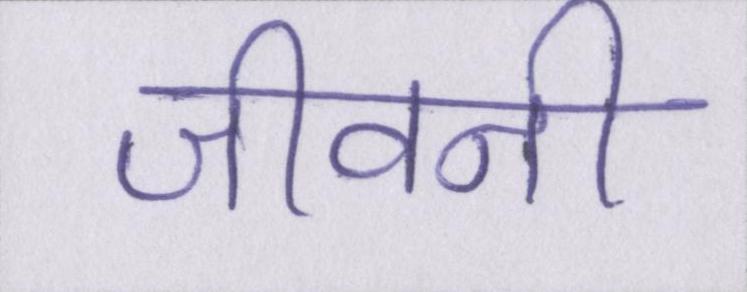 जीवनी